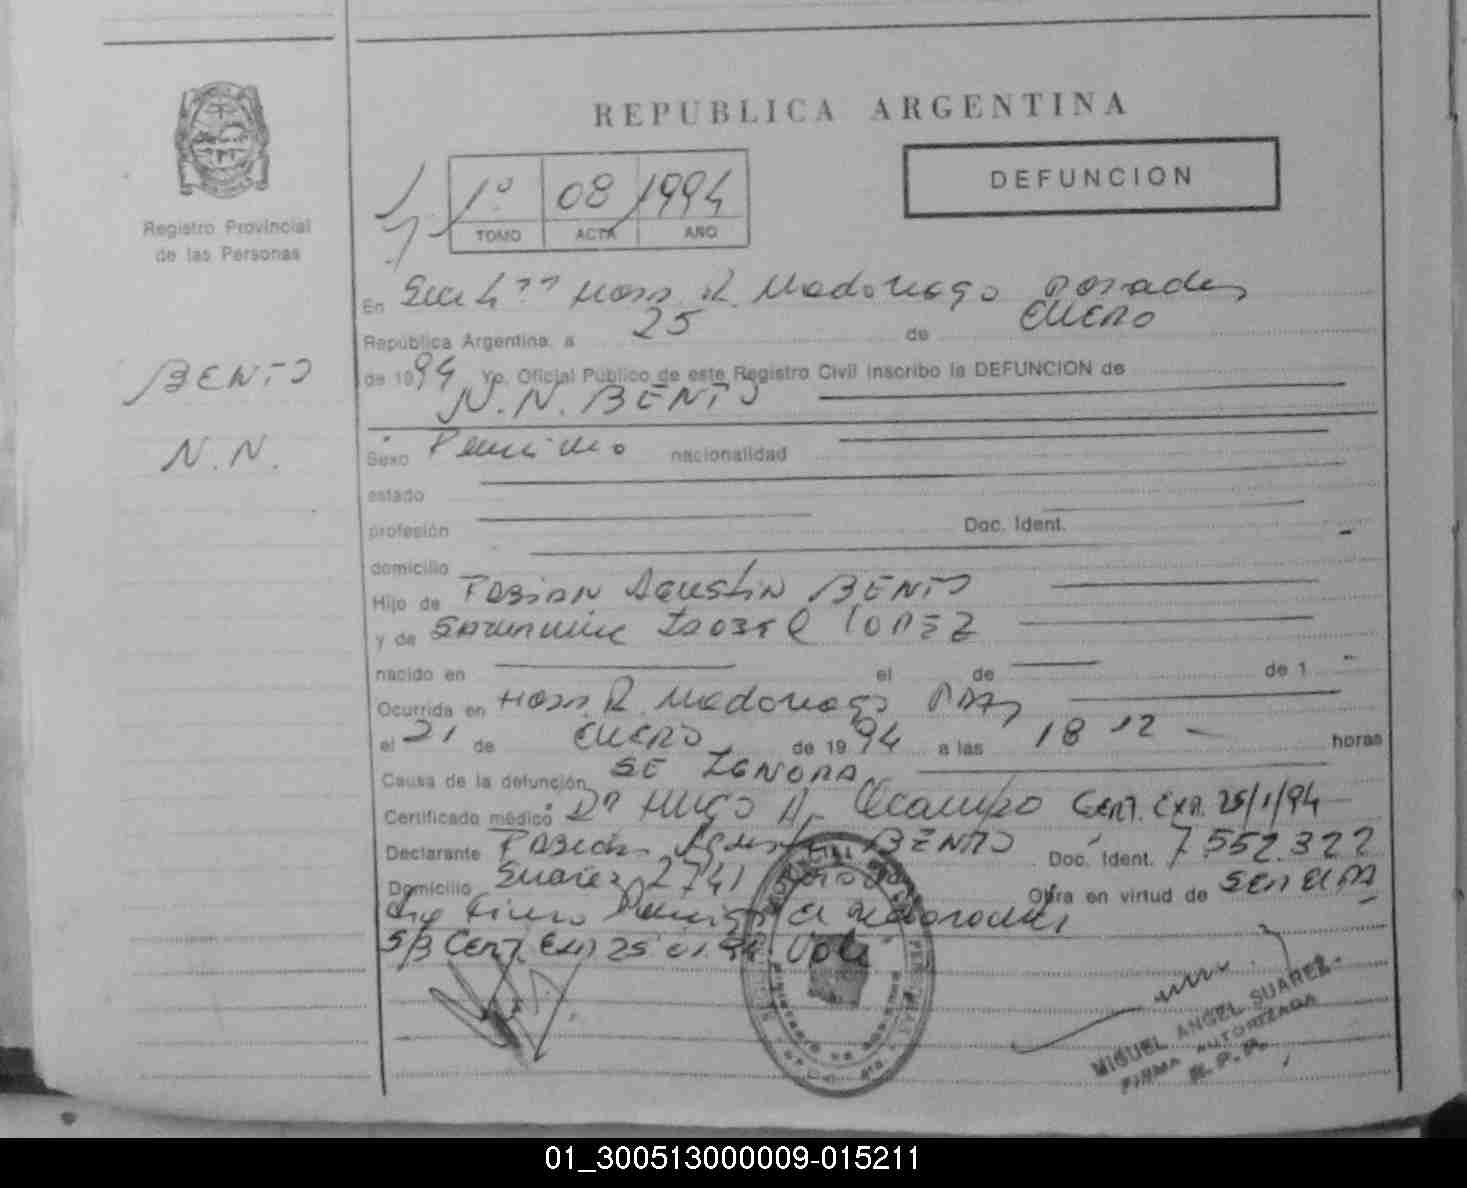 REPUBLICA ARGENTINA
DEFUNCION
1º 08 1994
TOMO ACTA AÑO
Registro Provincial
de las Personas
En Hosp. R. Madariaga Posadas
República Argentina, a 25 de ENERO
de 1994 Yo, Oficial Público de este Registro Civil inscribo la DEFUNCION de
BENTO
N.N. BENTO
N.N.
Sexo Femenino nacionalidad
estado
profesión Doc. Ident.
domicilio
Hijo de FABIAN AGUSTIN BENTO
y de ISABEL LOPEZ
nacido en el de de 1
Ocurrida en Hosp. R. Madariaga
el 21 de ENERO de 1994 a las 18 12 horas
Causa de la defunción SE IGNORA
Certificado médico Dr HUGO A. Ocampo CERT. EXP. 25/1/94
Declarante FABIAN Agustin BENTO Doc. Ident. 7.552.322
Domicilio Suarez 2741 Obra en virtud de SER EL PA
S/B CERT. EXP 25 01 94
MIGUEL ANGEL SUAREZ
FIRMA AUTORIZADA
R.P.P.
01_300513000009-015211